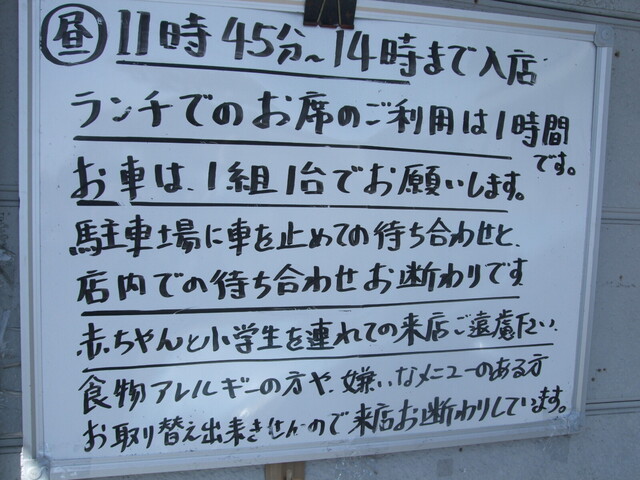 昼 11時45分～14時まで入店
ランチでのお席のご利用は1時間
です。
お車は、1組1台でお願いします。
駐車場に車を止めての待ち合わせと、
店内での待ち合わせお断わりです
赤ちゃんと小学生を連れての来店ご遠慮下さい、
食物アレルギーの方や、嫌いなメニューのある方
お取り替え出来きせんので来店お断わりしています。